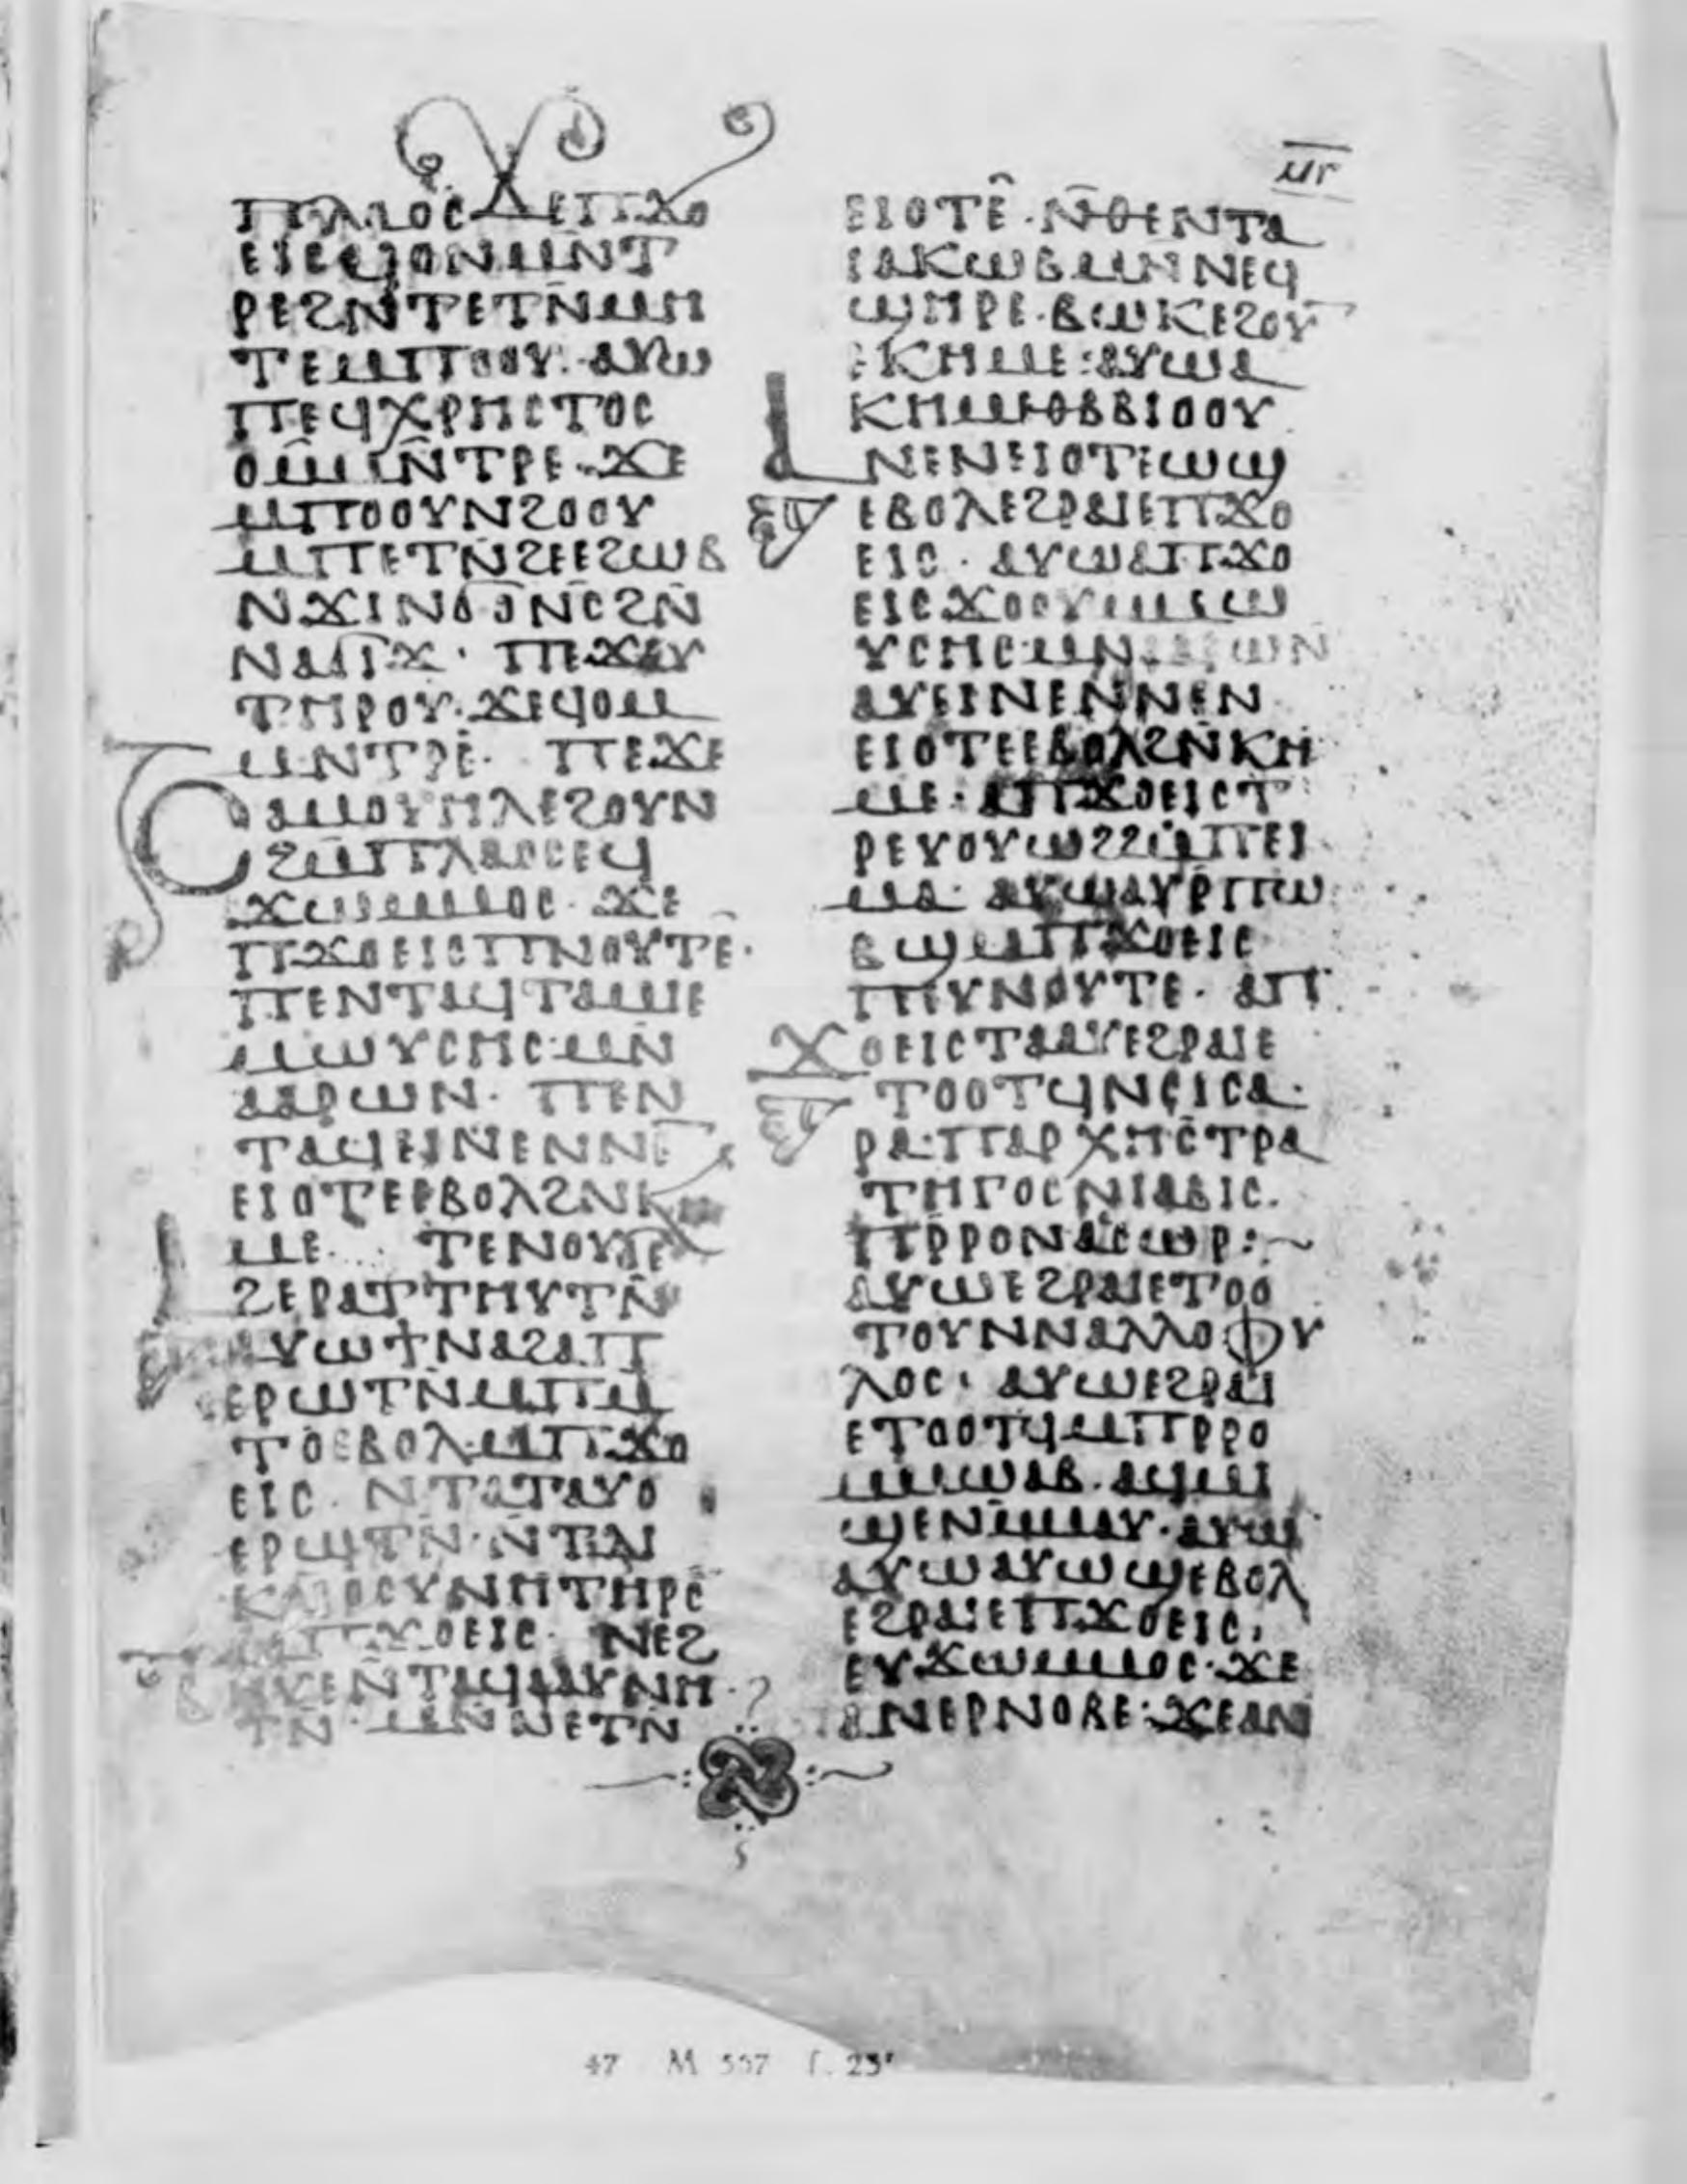 ⲙⲅ
ⲡⲗⲁⲟⲥ ϫⲉⲡϫⲟ
ⲉⲓⲥϥⲟⲛⲙⲛⲧ
ⲣⲉϩⲛⲧⲉⲧⲛⲙⲏ
ⲧⲉⲙⲡⲟⲟⲩ· ⲁⲩⲱ
ⲡⲉϥⲭⲣⲏⲥⲧⲟⲥ
ⲟⲙⲙⲛ̄ⲧⲣⲉ· ϫⲉ
ⲙⲡⲟⲟⲩⲛϩⲟⲟⲩ
ⲙⲡⲉⲧⲛ̄ϩⲉⲉϩⲱⲃ
ⲛϫⲓⲛϭⲟⲛⲥϩⲛ̄
ⲛⲁϭⲓϫ· ⲡⲉϫⲁⲩ
ⲧⲏⲣⲟⲩ· ϫⲉϥⲟⲙ
ⲙⲛⲧⲣⲉ· ⲡⲉϫⲉ
ⲥⲁⲙⲟⲩⲏⲗⲉϩⲟⲩⲛ
ϩⲙ̄ⲡⲗⲁⲟⲥⲉϥ
ϫⲱⲙⲙⲟⲥ· ϫⲉ
ⲡϫⲟⲉⲓⲥⲡⲛⲟⲩⲧⲉ·
ⲡⲉⲛⲧⲁϥⲧⲁⲙⲓⲉ
ⲙⲱⲩⲥⲏⲥ·ⲙⲛ
ⲁⲁⲣⲱⲛ· ⲡⲉⲛ
ⲧⲁϥⲉⲓⲛⲉⲛⲛⲉ
ⲉⲓⲟⲧⲉⲉⲃⲟⲗϩⲛⲕⲏ
ⲙⲉ· ⲧⲉⲛⲟⲩϭⲉ
ⲁϩⲉⲣⲁⲧⲧⲏⲩⲧⲛ̄
ⲁⲩⲱϯⲛⲁϩⲁⲡ
ⲉⲣⲱⲧⲛ̄ⲙⲡⲙ
ⲧⲟⲉⲃⲟⲗⲙⲡϫⲟ
ⲉⲓⲥ· ⲛⲧⲁⲧⲁⲩⲟ
ⲉⲣⲱⲧⲛ̄·ⲛ̄ⲧⲇⲓ
ⲕⲁⲓⲟⲥⲩⲛⲏⲧⲏⲣⲥ̄
ⲙⲡϫⲟⲉⲓⲥ· ⲛⲉϩ
ⲃⲏⲩⲉⲛ̄ⲧⲁϥⲁⲁⲩⲛⲏ
ⲧⲛ̄· ⲙⲛ̄ⲛⲉⲧⲛ̄
ⲉⲓⲟⲧⲉ̂·ⲛ̄ⲑⲉⲛⲧⲁ
ⲓⲁⲕⲱⲃⲙⲛ̄ⲛⲉϥ
ϣⲏⲣⲉ·ⲃⲱⲕⲉϩⲟⲩ
ⲉⲕⲏⲙⲉ:ⲁⲩⲱⲁ
ⲕⲏⲙⲉⲑⲃⲃⲓⲟⲟⲩ
ⲁⲛⲉⲛⲉⲓⲟⲧⲉⲱϣ
ⲉⲃⲟⲗⲉϩⲣⲁⲓⲉⲡϫⲟ
ⲉⲓⲥ· ⲁⲩⲱⲁⲡϫⲟ
ⲉⲓⲥϫⲟⲟⲩⲙⲙⲱ
ⲩⲥⲏⲥⲙⲛⲁⲁⲣⲱⲛ
ⲁⲩⲉⲓⲛⲉⲛⲛⲉⲛ
ⲉⲓⲟⲧⲉⲉⲃⲟⲗϩⲛ̄ⲕⲏ
ⲙⲉ· ⲁⲡϫⲟⲉⲓⲥⲧ
ⲣⲉⲩⲟⲩⲱϩϩⲙⲡⲉⲓ
ⲙⲁ· ⲁⲩⲱⲁⲩⲣ̄ⲡⲱ
ⲃϣⲙⲡϫⲟⲉⲓⲥ
ⲡⲉⲩⲛⲟⲩⲧⲉ· ⲁⲡ
ϫⲟⲉⲓⲥⲧⲁⲁⲩⲉϩⲣⲁⲓⲉ
ⲧⲟⲟⲧϥⲛⲥⲓⲥⲁ·
ⲣⲁ·ⲡⲁⲣⲭⲏⲥⲧⲣⲁ
ⲧⲏⲅⲟⲥⲛⲓⲁⲃⲓⲥ·
ⲡⲣ̄ⲣⲟⲛⲁⲥⲱⲣ:~
ⲁⲩⲱⲉϩⲣⲁⲓⲉⲧⲟⲟ
ⲧⲟⲩⲛⲛⲁⲗⲗⲟⲫⲩ
ⲗⲟⲥ· ⲁⲩⲱⲉϩⲣⲁⲓ
ⲉⲧⲟⲟⲧϥⲙⲡⲣⲣⲟ
ⲙⲙⲱⲁⲃ·ⲁϥⲙⲓ
ϣⲉⲛⲙⲙⲁⲩ·ⲁⲩⲱ
ⲁⲩⲱⲁⲩⲱϣⲉⲃⲟⲗ
ⲉϩⲣⲁⲓⲉⲡϫⲟⲉⲓⲥ·
ⲉⲩϫⲱⲙⲙⲟⲥ·ϫⲉ
ⲁⲛⲉⲣⲛⲟⲃⲉ:ϫⲉⲁⲛ
47 M 557 f. 23ʳ